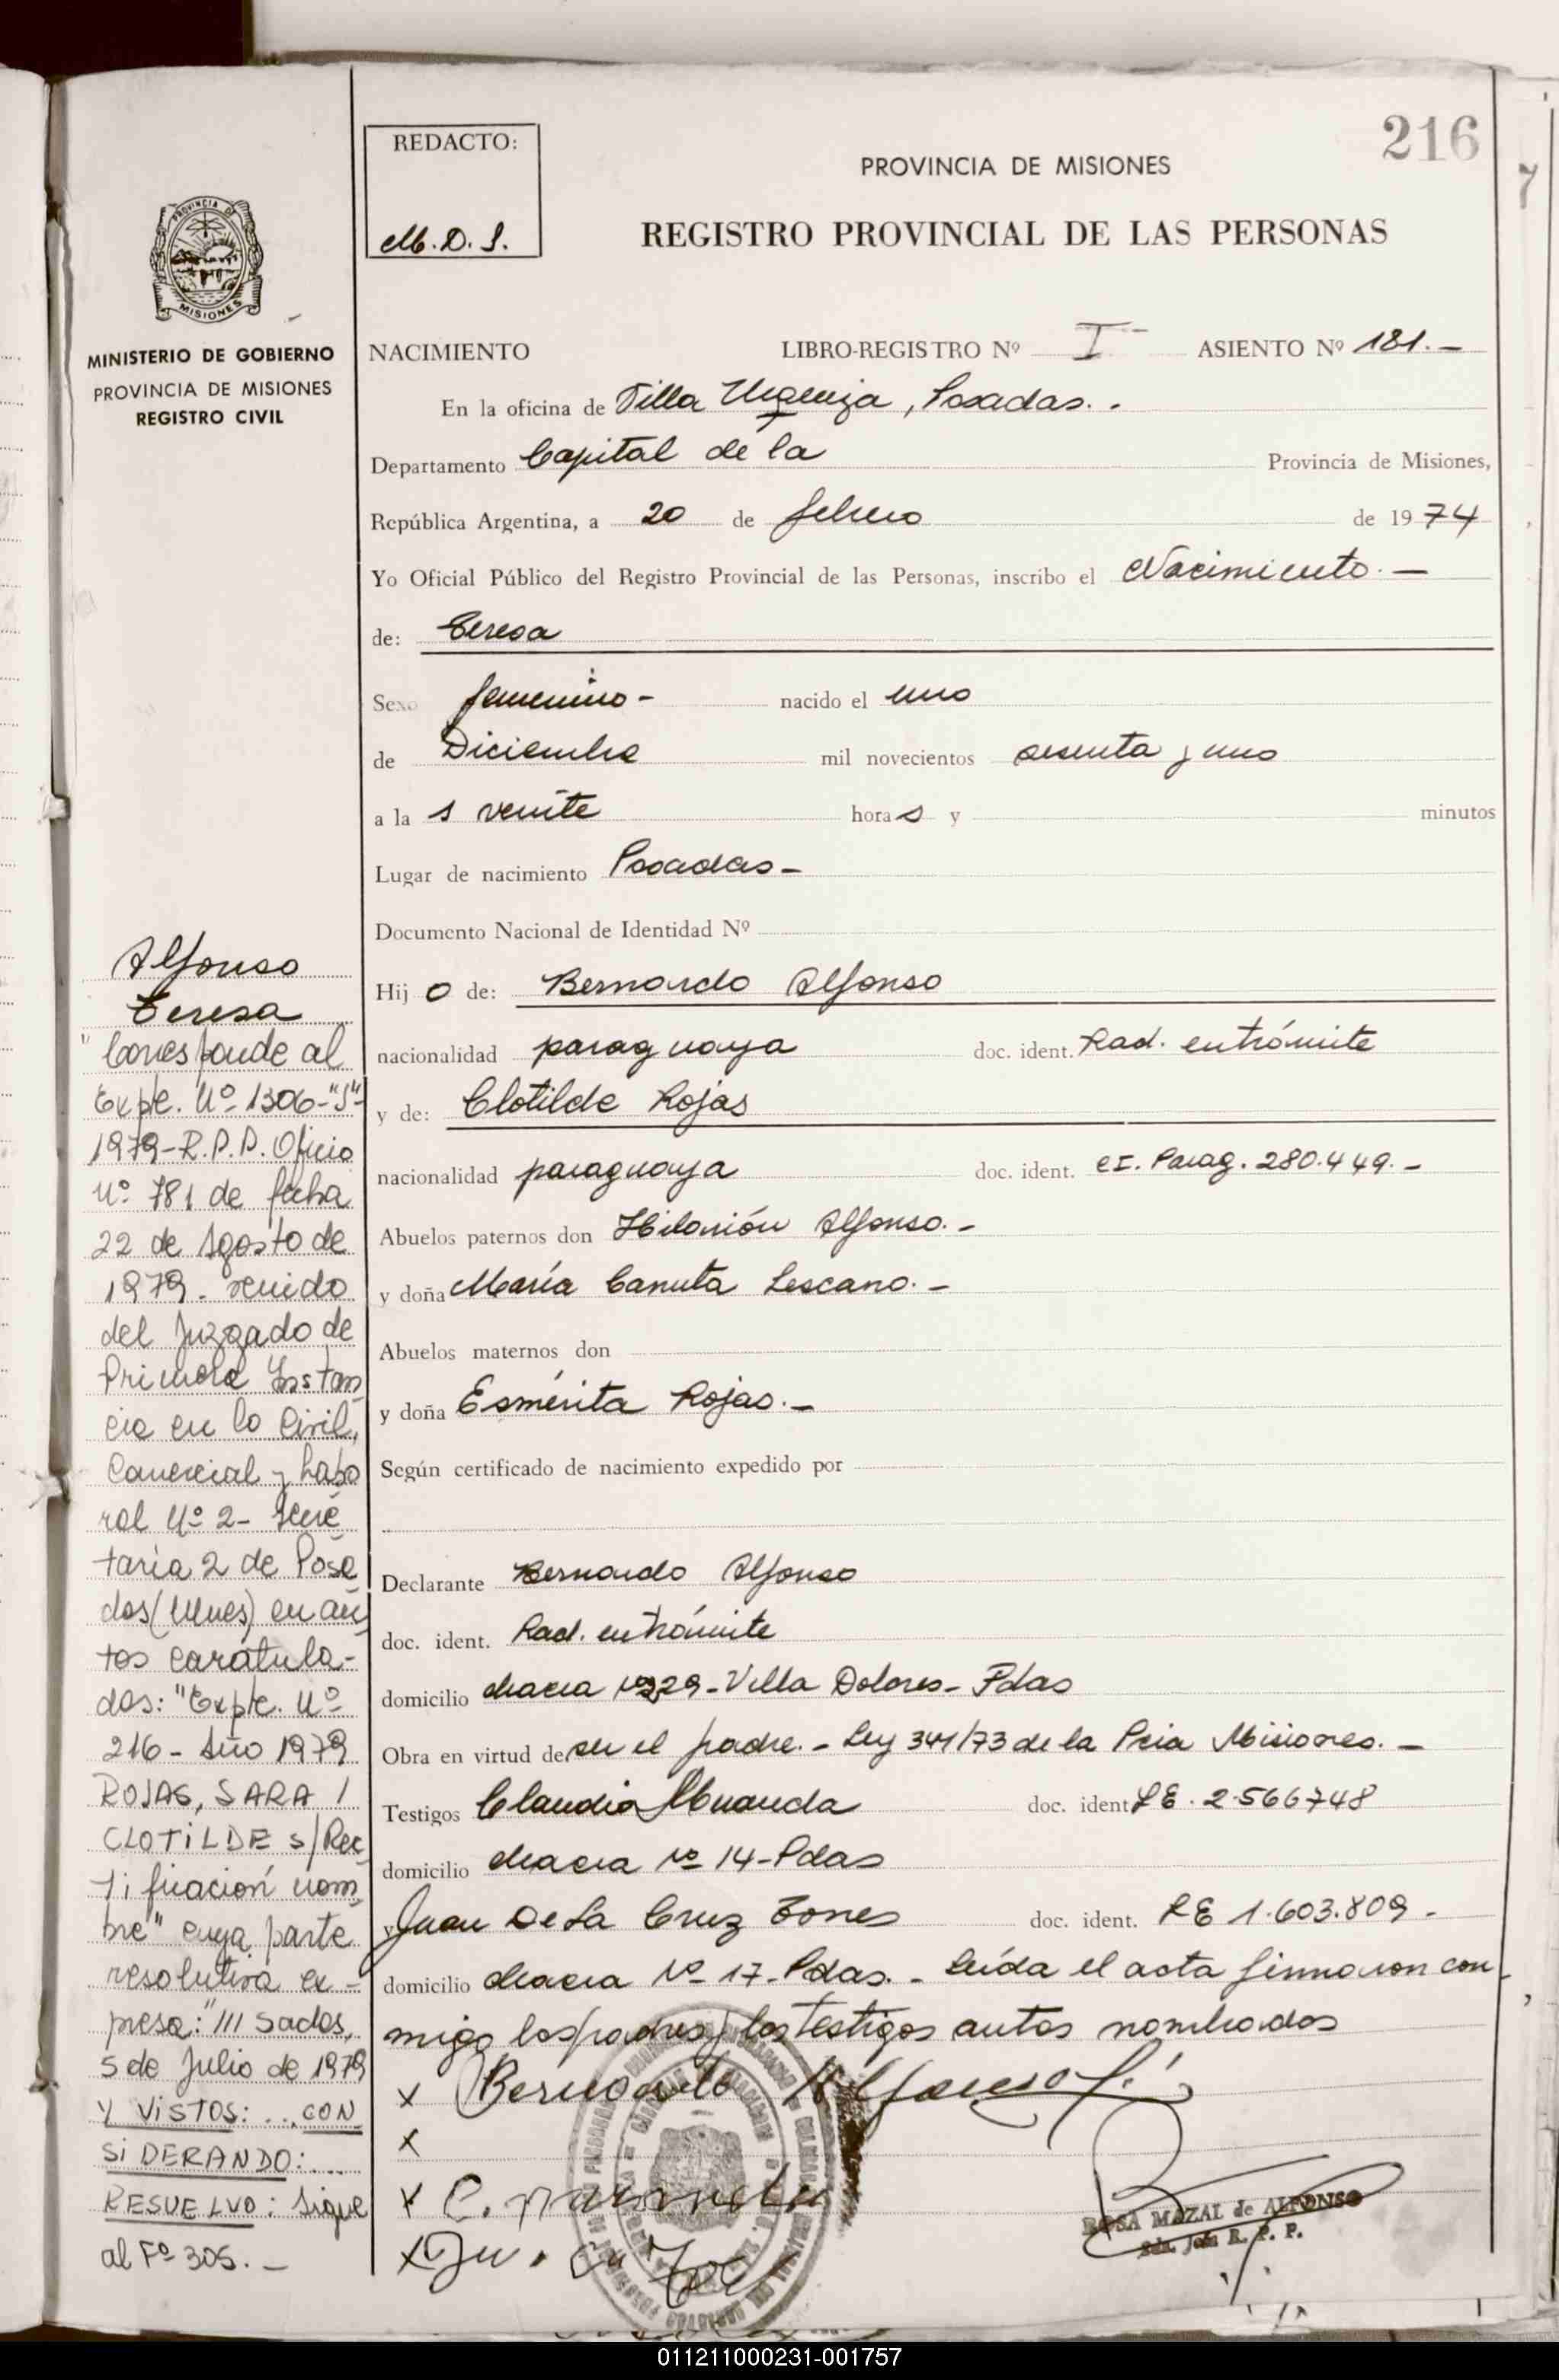 216
REDACTO:
M.D.S.
PROVINCIA DE MISIONES
REGISTRO PROVINCIAL DE LAS PERSONAS
PROVINCIA DE
MISIONES
MINISTERIO DE GOBIERNO
PROVINCIA DE MISIONES
REGISTRO CIVIL
NACIMIENTO LIBRO-REGISTRO Nº I ASIENTO Nº 181.-
En la oficina de Villa Urquiza, Posadas.-
Departamento Capital de la Provincia de Misiones,
República Argentina, a 20 de febrero de 1974
Yo Oficial Público del Registro Provincial de las Personas, inscribo el Nacimiento.-
de: Teresa
Sexo femenino- nacido el uno
de Diciembre mil novecientos sesenta y uno
a la s veinte horas y minutos
Lugar de nacimiento Posadas-
Documento Nacional de Identidad Nº
Hijo de: Bernardo Alfonso
nacionalidad paraguaya doc. ident. Rad. entrámite
y de: Clotilde Rojas
nacionalidad paraguaya doc. ident. CI. Parag. 280.449.-
Abuelos paternos don Hilarión Alfonso.-
y doña María Canuta Lescano.-
Abuelos maternos don
y doña Esmérita Rojas.-
Según certificado de nacimiento expedido por
Declarante Bernardo Alfonso
doc. ident. Rad. entrámite
domicilio chacra Nº 29-Villa Dolores-Pdas
Obra en virtud de ser el padre.- Ley 341/73 de la Pcia Misiones.-
Testigos Claudio Miranda doc. ident LE. 2.566748
domicilio chacra Nº 14-Pdas
y Juan De La Cruz Torres doc. ident. LE 1.603.809-
domicilio chacra Nº 17-Pdas.- Leída el acta firmaron con
migo los padres y los testigos antes nombrados
x Bernardo Alfonso
x
x C. Miranda
x
ROSA MAZAL de ALFONSO
R. P. P.
Alfonso
Teresa
"Corresponde al
Expte. Nº 1306-"S"-
1979-R.P.P. Oficio
Nº 781 de fecha
22 de Agosto de
1979- venido
del Juzgado de
Primera Instan
cia en lo Civil,
Comercial y Labo
ral Nº 2- Secre
taría 2 de Posa
das (Mnes) en au
tos caratula-
dos: "Expte. Nº
216- Año 1979
ROJAS, SARA /
CLOTILDE s/Rec
tificación nom
bre" cuya parte
resolutiva ex-
presa: "///sadas,
5 de Julio de 1979
Y VISTOS: ...CON
SIDERANDO: ....
RESUELVO: sigue
al Fº 305.-
011211000231-001757